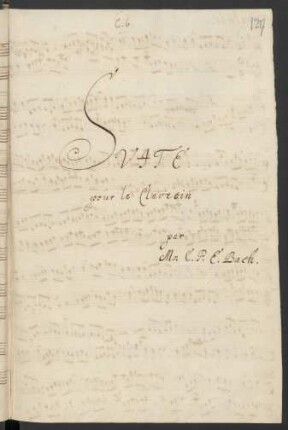 C. 6
127
SVITE
pour le Clavecin
par
Mr. C. P. E. Bach.